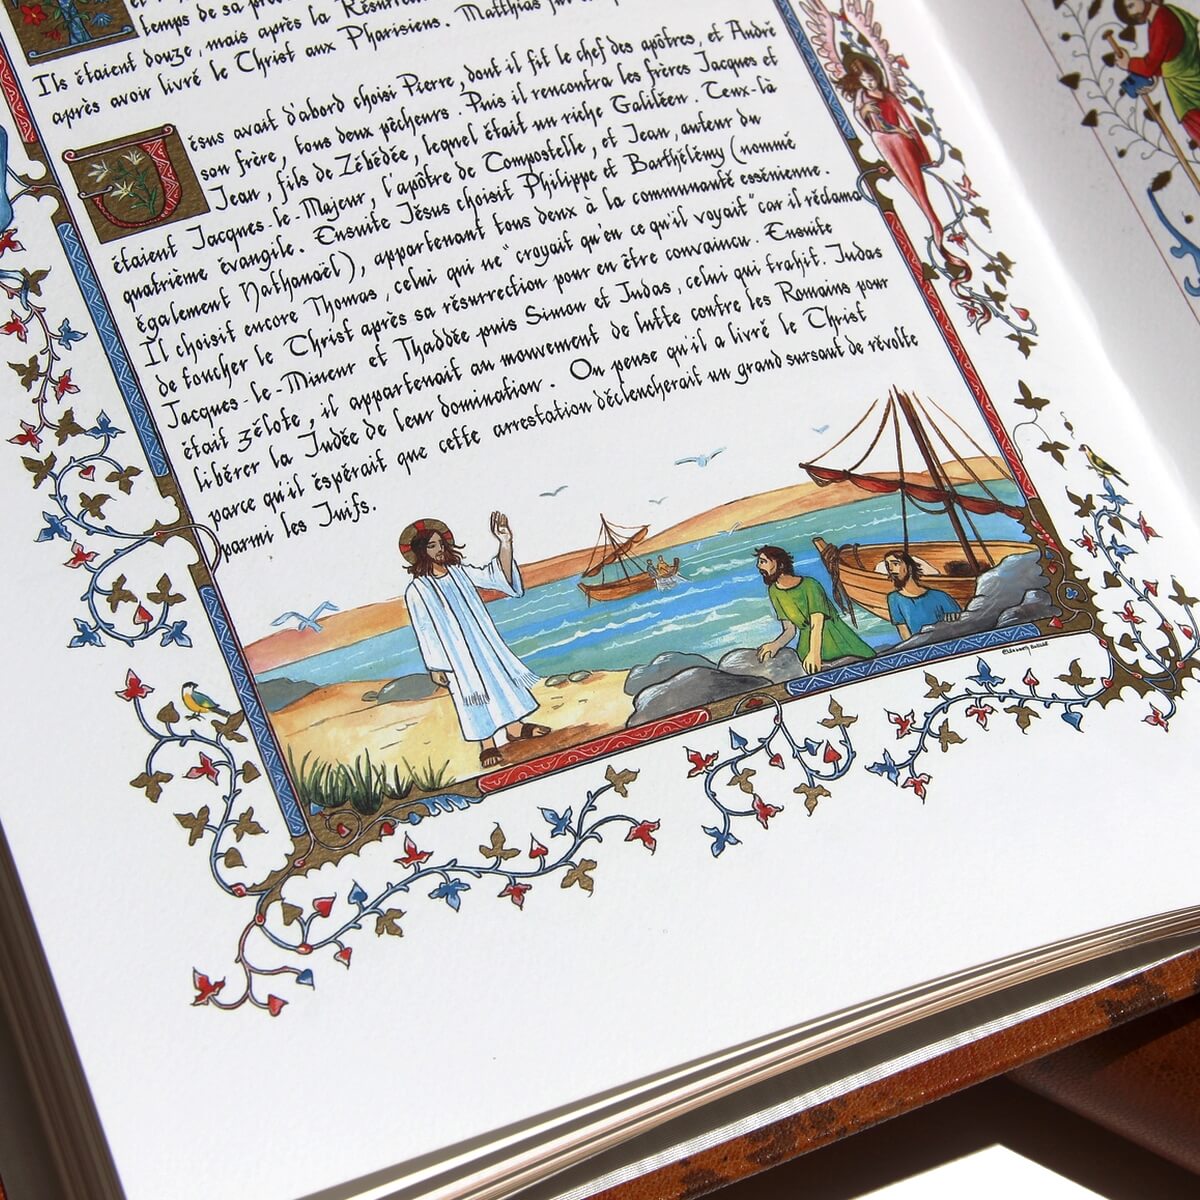 temps de sa
Ils étaient douze, mais après la Résurrec
après avoir livré le Christ aux Pharisiens. Matthias fut
Jésus avait d'abord choisi Pierre, dont il fit le chef des apôtres, et André
son frère, tous deux pêcheurs. Puis il rencontra les frères Jacques et
Jean, fils de Zébédée, lequel était un riche Galiléen. Ceux-là
étaient Jacques-le-Majeur, l'apôtre de Compostelle, et Jean, auteur du
quatrième évangile. Ensuite Jésus choisit Philippe et Barthélémy (nommé
également Nathanaël), appartenant tous deux à la communauté essénienne.
Il choisit encore Thomas, celui qui ne "croyait qu'en ce qu'il voyait" car il réclama
de toucher le Christ après sa résurrection pour en être convaincu. Ensuite
Jacques-le-Mineur et Thaddée puis Simon et Judas, celui qui trahit. Judas
était zélote, il appartenait au mouvement de lutte contre les Romains pour
libérer la Judée de leur domination. On pense qu'il a livré le Christ
parce qu'il éspérait que cette arrestation déclencherait un grand sursaut de révolte
parmi les Juifs.